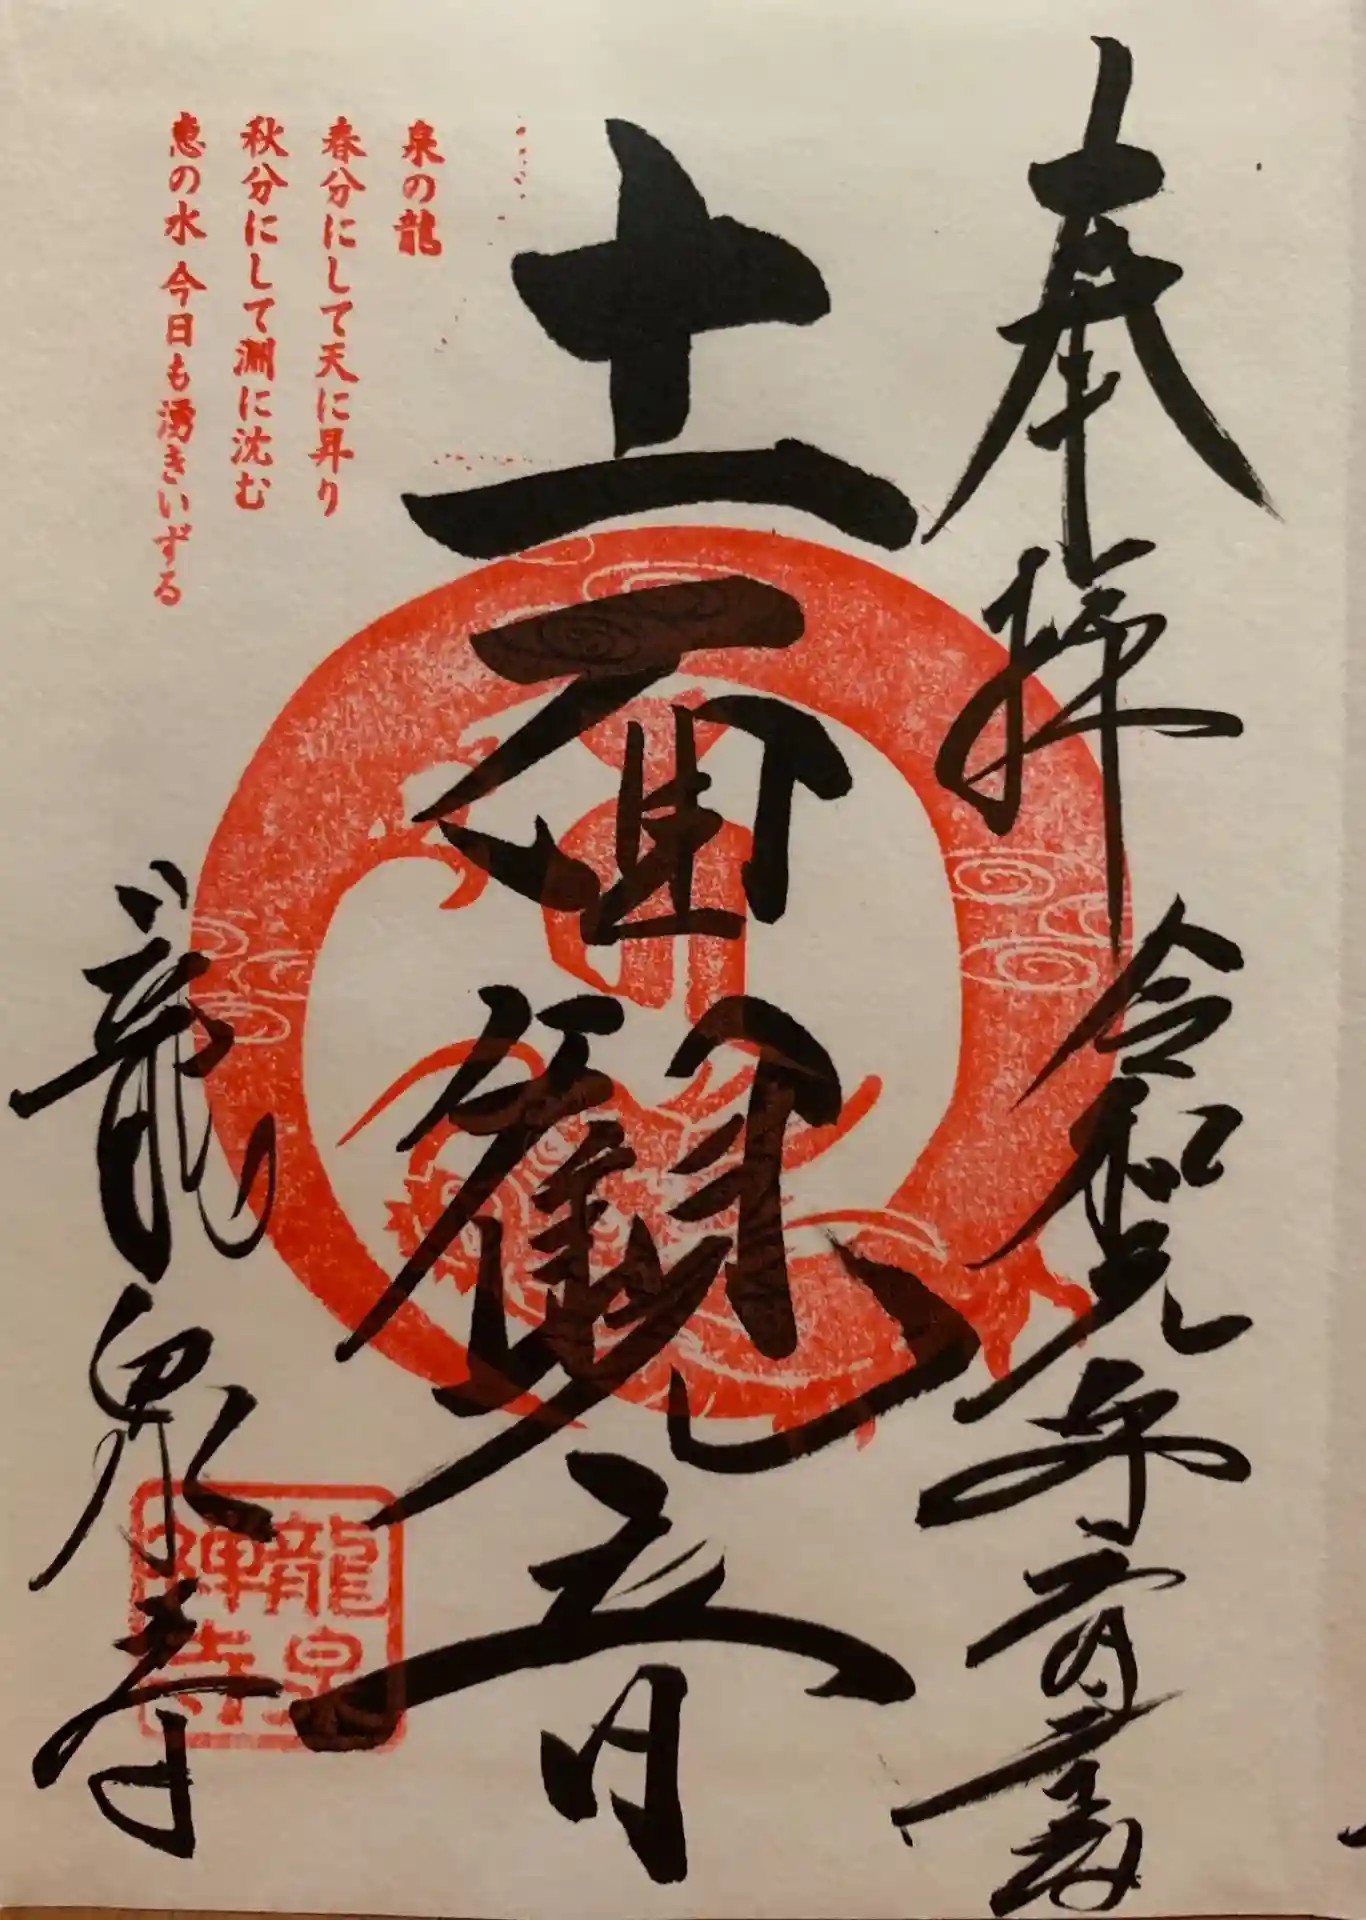 奉拝 令和元年
十一面観音
泉の龍
春分にして天に昇り
秋分にして淵に沈む
恵の水 今日も湧きいずる
龍泉寺
龍泉
禅寺